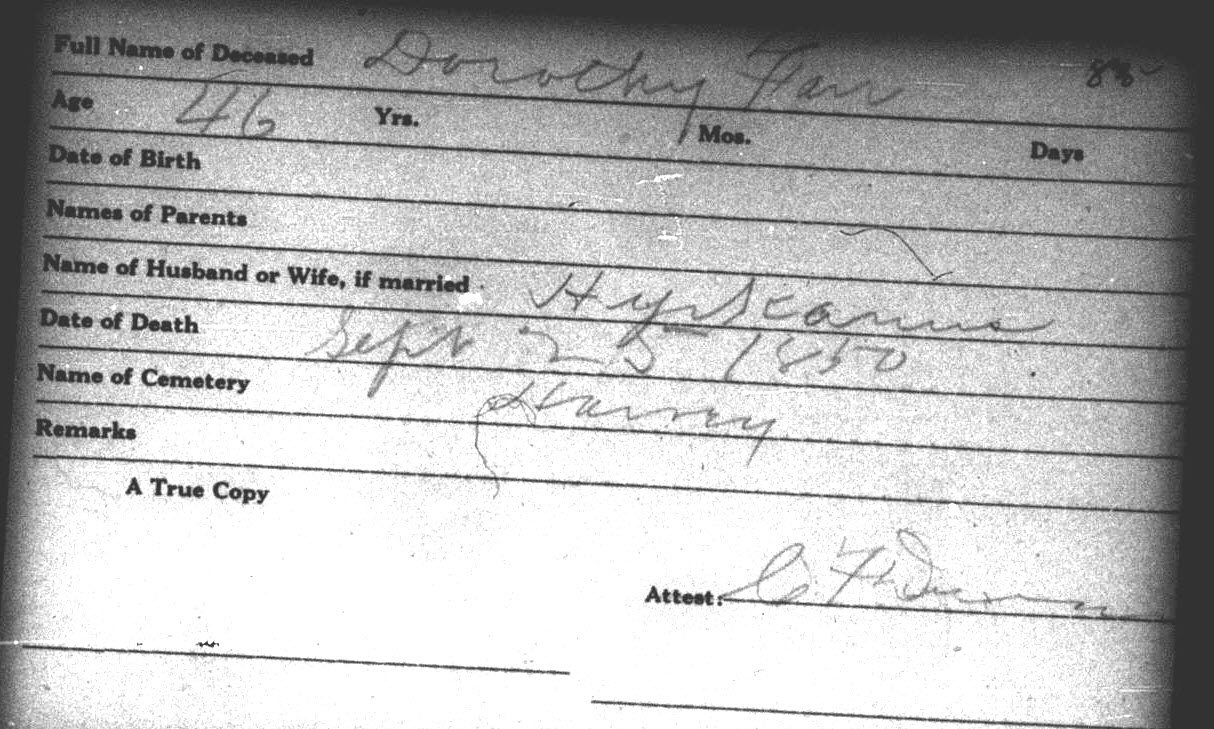 Full Name of Deceased Dorothy Farr
Age 46 Yrs. Mos. Days
Date of Birth
Names of Parents
Name of Husband or Wife, if married Hyrcanus
Date of Death Sept 25 1850
Name of Cemetery
Remarks
A True Copy
Attest: